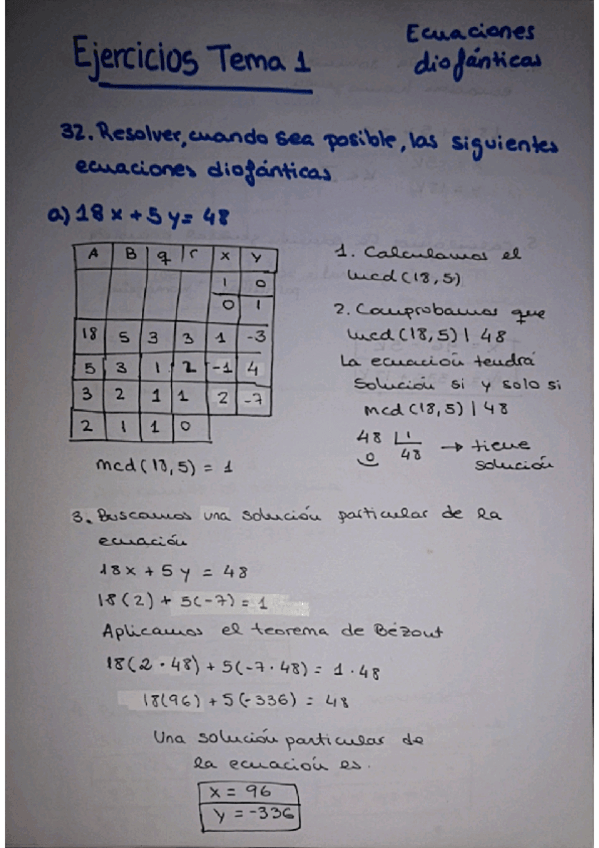 Ejercicios Tema 1
Ecuaciones
diofánticas
32. Resolver, cuando sea posible, las siguientes
ecuaciones diofánticas
a) 18x + 5y = 48
A B q r x y
1 0
0 1
18 5 3 3 1 -3
5 3 1 2 -1 4
3 2 1 1 2 -7
2 1 1 0
mcd(18,5) = 1
1. Calculamos el
mcd(18,5)
2. Comprobamos que
mcd(18,5) | 48
La ecuación tendrá
Solución si y solo si
mcd(18,5) | 48
48 | 1
0 48 → tiene
solución
3. Buscamos una solución particular de la
ecuación
18x + 5y = 48
18(2) + 5(-7) = 1
Aplicamos el teorema de Bézout
18(2 · 48) + 5(-7 · 48) = 1 · 48
18(96) + 5(-336) = 48
Una solución particular de
la ecuación es.
x = 96
y = -336